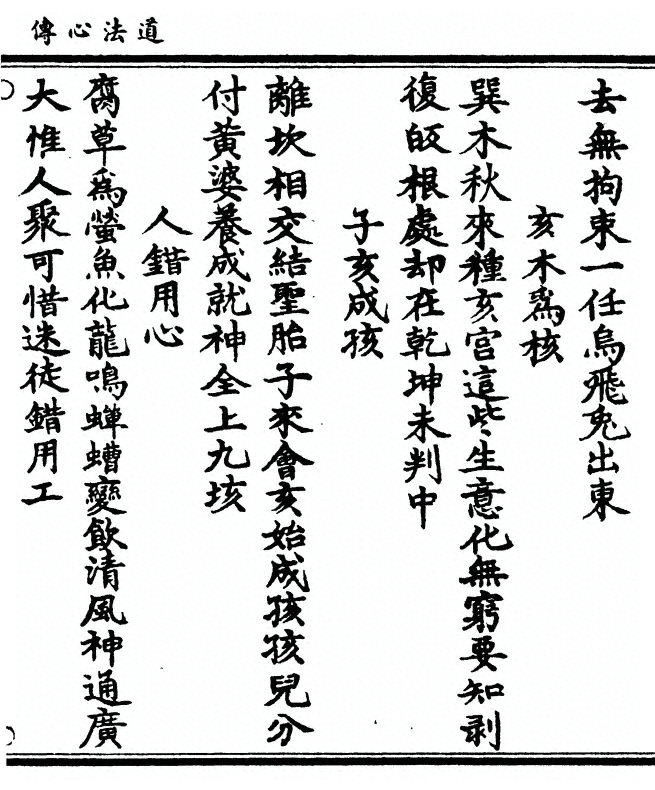 道法心傳
去無拘束一任烏飛兔出東
亥木爲核
巽木秋來種亥宮這些生意化無窮要知剥
復的根處却在乾坤未判中
子亥成孩
離坎相交結聖胎子來會亥始成孩孩兒分
付黃婆養成就神全上九垓
人錯用心
腐草爲螢魚化龍鳴蟬螬變飲清風神通廣
大惟人聚可惜迷徒錯用工